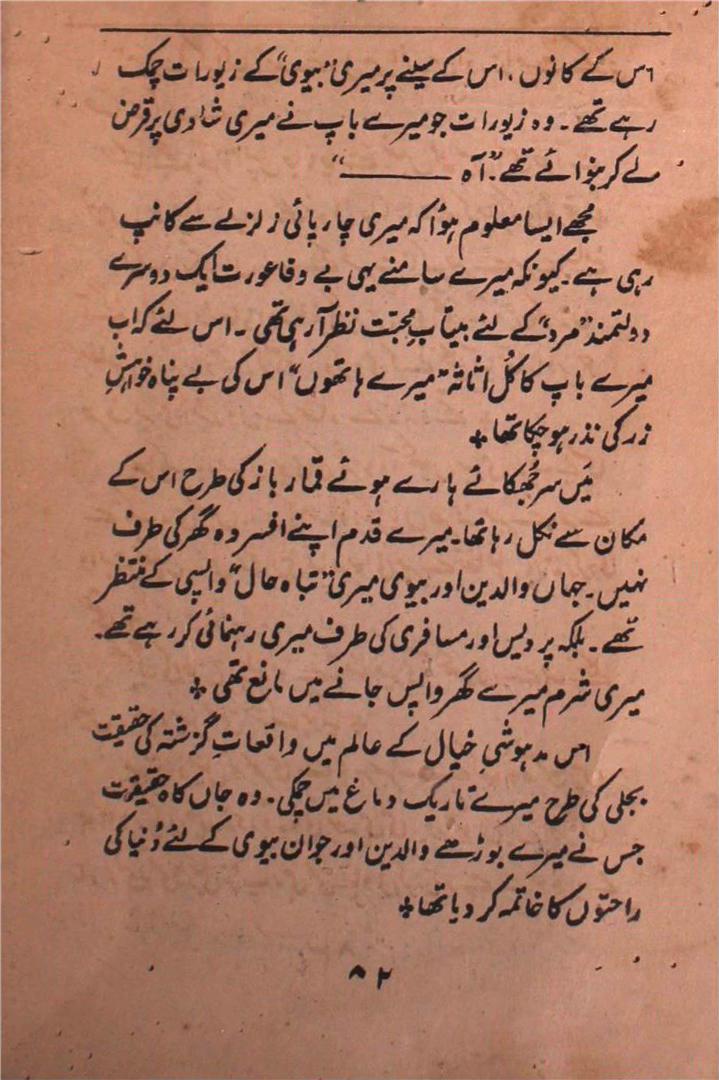 اس کے کانوں، اس کے سینے پر میری "بیوی" کے زیورات چمک
رہے تھے۔ وہ زیورات جو میرے باپ نے میری شادی پر قرض
لے کر بنوائے تھے۔ "آہ ــــــــــ"
مجھے ایسا معلوم ہؤا کہ میری چارپائی زلزلے سے کانپ
رہی ہے۔ کیونکہ میرے سامنے یہی بے وفا عورت ایک دوسرے
دولتمند "مرد" کے لئے بیتابِ محبّت نظر آ رہی تھی۔ اس لئے کہ اب
میرے باپ کا کُل اثاثہ "میرے ہاتھوں" اس کی بے پناہ خواہشِ
زر کی نذر ہو چکا تھا ÷
مَیں سر جُھکائے ہارے ہوئے قمار باز کی طرح اس کے
مکان سے نکل رہا تھا۔ میرے قدم اپنے افسردہ گھر کی طرف
نہیں۔ جہاں والدین اور بیوی میری "تباہ حال" واپسی کے منتظر
تھے۔ بلکہ پردیس اور مسافری کی طرف میری رہنمائی کر رہے تھے۔
میری شرم میرے گھر واپس جانے میں مانع تھی ÷
اس مدہوشیِ خیال کے عالم میں واقعاتِ گزشتہ کی حقیقت
بجلی کی طرح میرے تاریک دماغ میں چمکی۔ وہ جاں کاہ حقیقت
جس نے میرے بوڑھے والدین اور جوان بیوی کے لئے دُنیا کی
راحتوں کا خاتمہ کر دیا تھا ÷
۸۲